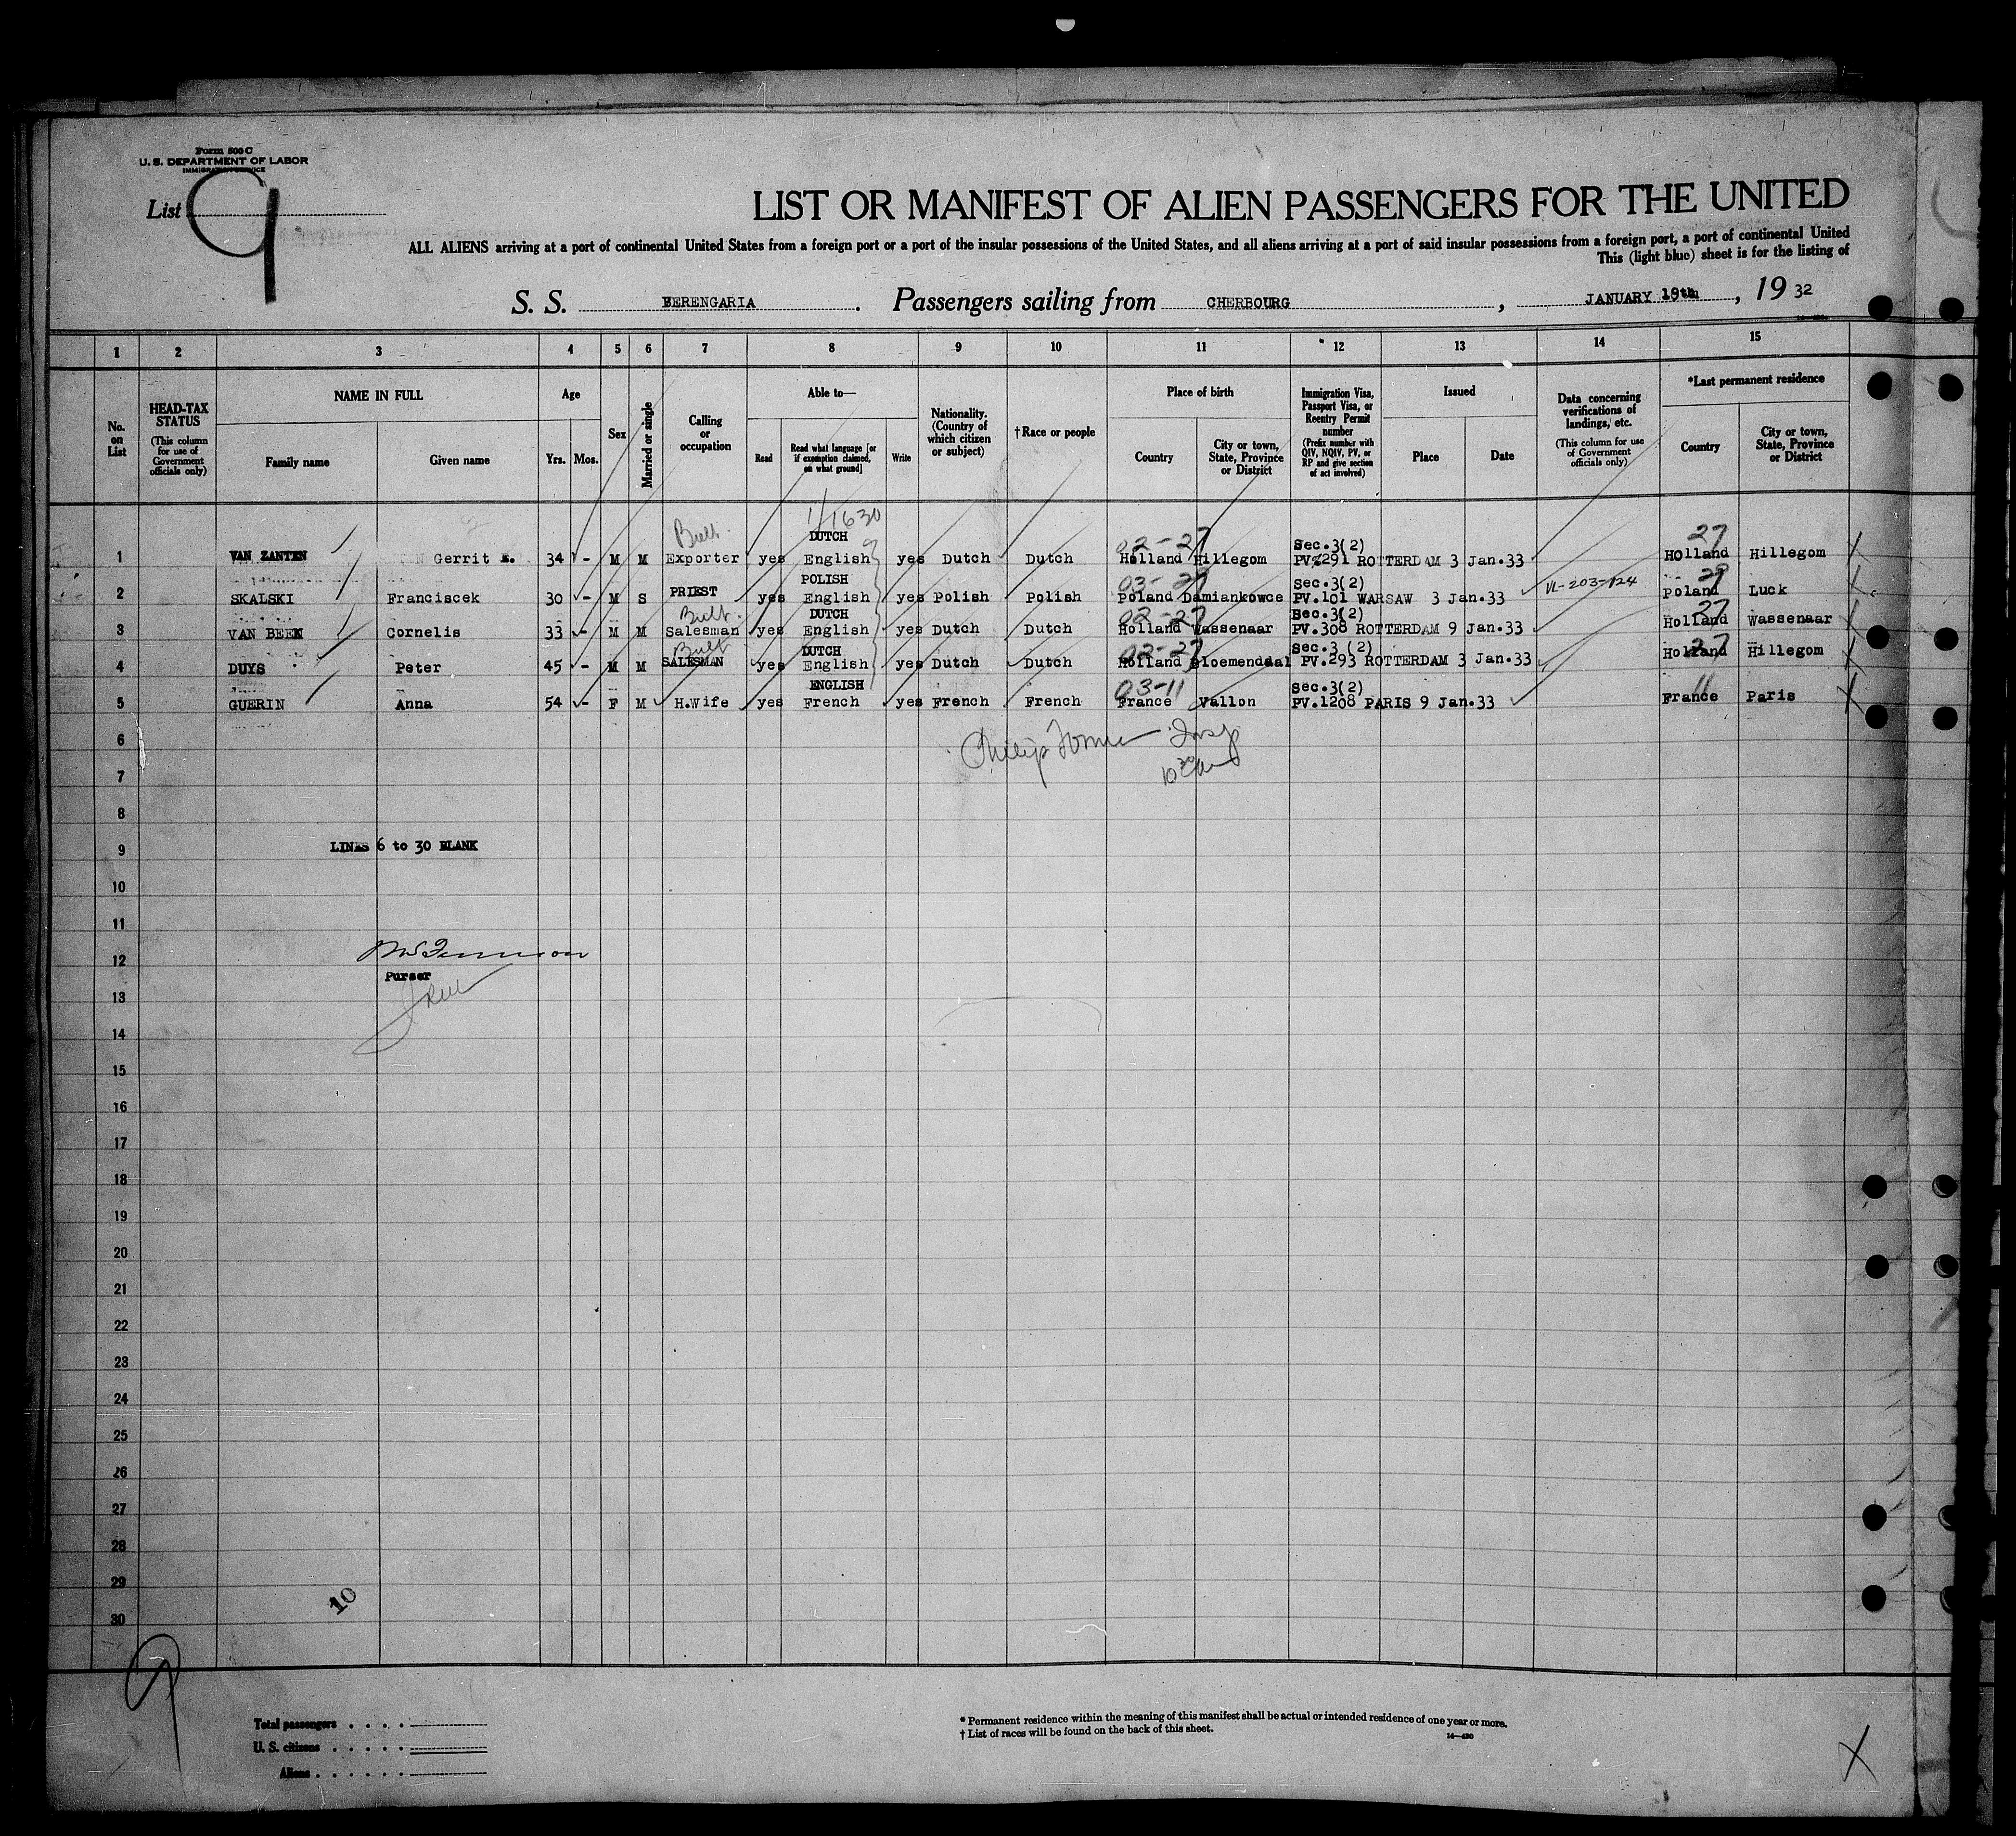 Form 500 C
U. S. DEPARTMENT OF LABOR
IMMIGRATION SERVICE
List 9
LIST OR MANIFEST OF ALIEN PASSENGERS FOR THE UNITED
ALL ALIENS arriving at a port of continental United States from a foreign port or a port of the insular possessions of the United States, and all aliens arriving at a port of said insular possessions from a foreign port, a port of continental United
This (light blue) sheet is for the listing of
S. S. BERENGARIA. Passengers sailing from CHERBOURG, JANUARY 19th, 19 32
1 2 3 4 5 6 7 8 9 10 11 12 13 14 15
No. on List
HEAD-TAX STATUS (This column for use of Government officials only)
NAME IN FULL
Family name Given name
Age
Yrs. Mos.
Sex
Married or single
Calling or occupation
Able to—
Read Read what language [or if exemption claimed, on what ground] Write
Nationality. (Country of which citizen or subject)
†Race or people
Place of birth
Country City or town, State, Province or District
Immigration Visa, Passport Visa, or Reentry Permit number (Prefix number with QIV, NQIV, PV, or RP and give section of act involved)
Issued
Place Date
Data concerning verifications of landings, etc. (This column for use of Government officials only)
*Last permanent residence
Country City or town, State, Province or District
1/1630
Bulb. DUTCH 02-27 Sec.3(2) 27
1 VAN ZANTEN Gerrit 34 - M M Exporter yes English yes Dutch Dutch Holland Hillegom PV.291 ROTTERDAM 3 Jan.33 Holland Hillegom
POLISH Sec.3(2)
2 SKALSKI Franciscek 30 - M S PRIEST yes English yes Polish Polish Poland Damiankowce PV.101 WARSAW 3 Jan.33 VL-203-124 Poland Luck
Bulb. DUTCH 02-27 Sec.3(2) 27
3 VAN BEEK Cornelis 33 - M M Salesman yes English yes Dutch Dutch Holland Wassenaar PV.308 ROTTERDAM 9 Jan.33 Holland Wassenaar
Bulb DUTCH 02-27 Sec.3 (2) 27
4 DUYS Peter 45 - M M SALESMAN yes English yes Dutch Dutch Holland Bloemendaal PV.293 ROTTERDAM 3 Jan.33 Holland Hillegom
ENGLISH 03-11 Sec.3(2) 11
5 GUERIN Anna 54 - F M H.Wife yes French yes French French France Vallon PV.1208 PARIS 9 Jan.33 France Paris
6 Philip Insp
7 10 30 am
8
9 LINES 6 to 30 BLANK
10
11
12
Purser
13
14
15
16
17
18
19
20
21
22
23
24
25
26
27
28
29 10
30
9
Total passengers . . . .
U. S. citizens . . . . .
Aliens . . . . . .
* Permanent residence within the meaning of this manifest shall be actual or intended residence of one year or more.
† List of races will be found on the back of this sheet.
14—430
X